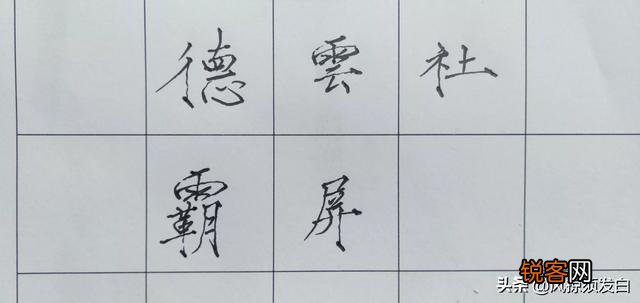 德雲社
霸屏
锐客网
头条@风掠须发白